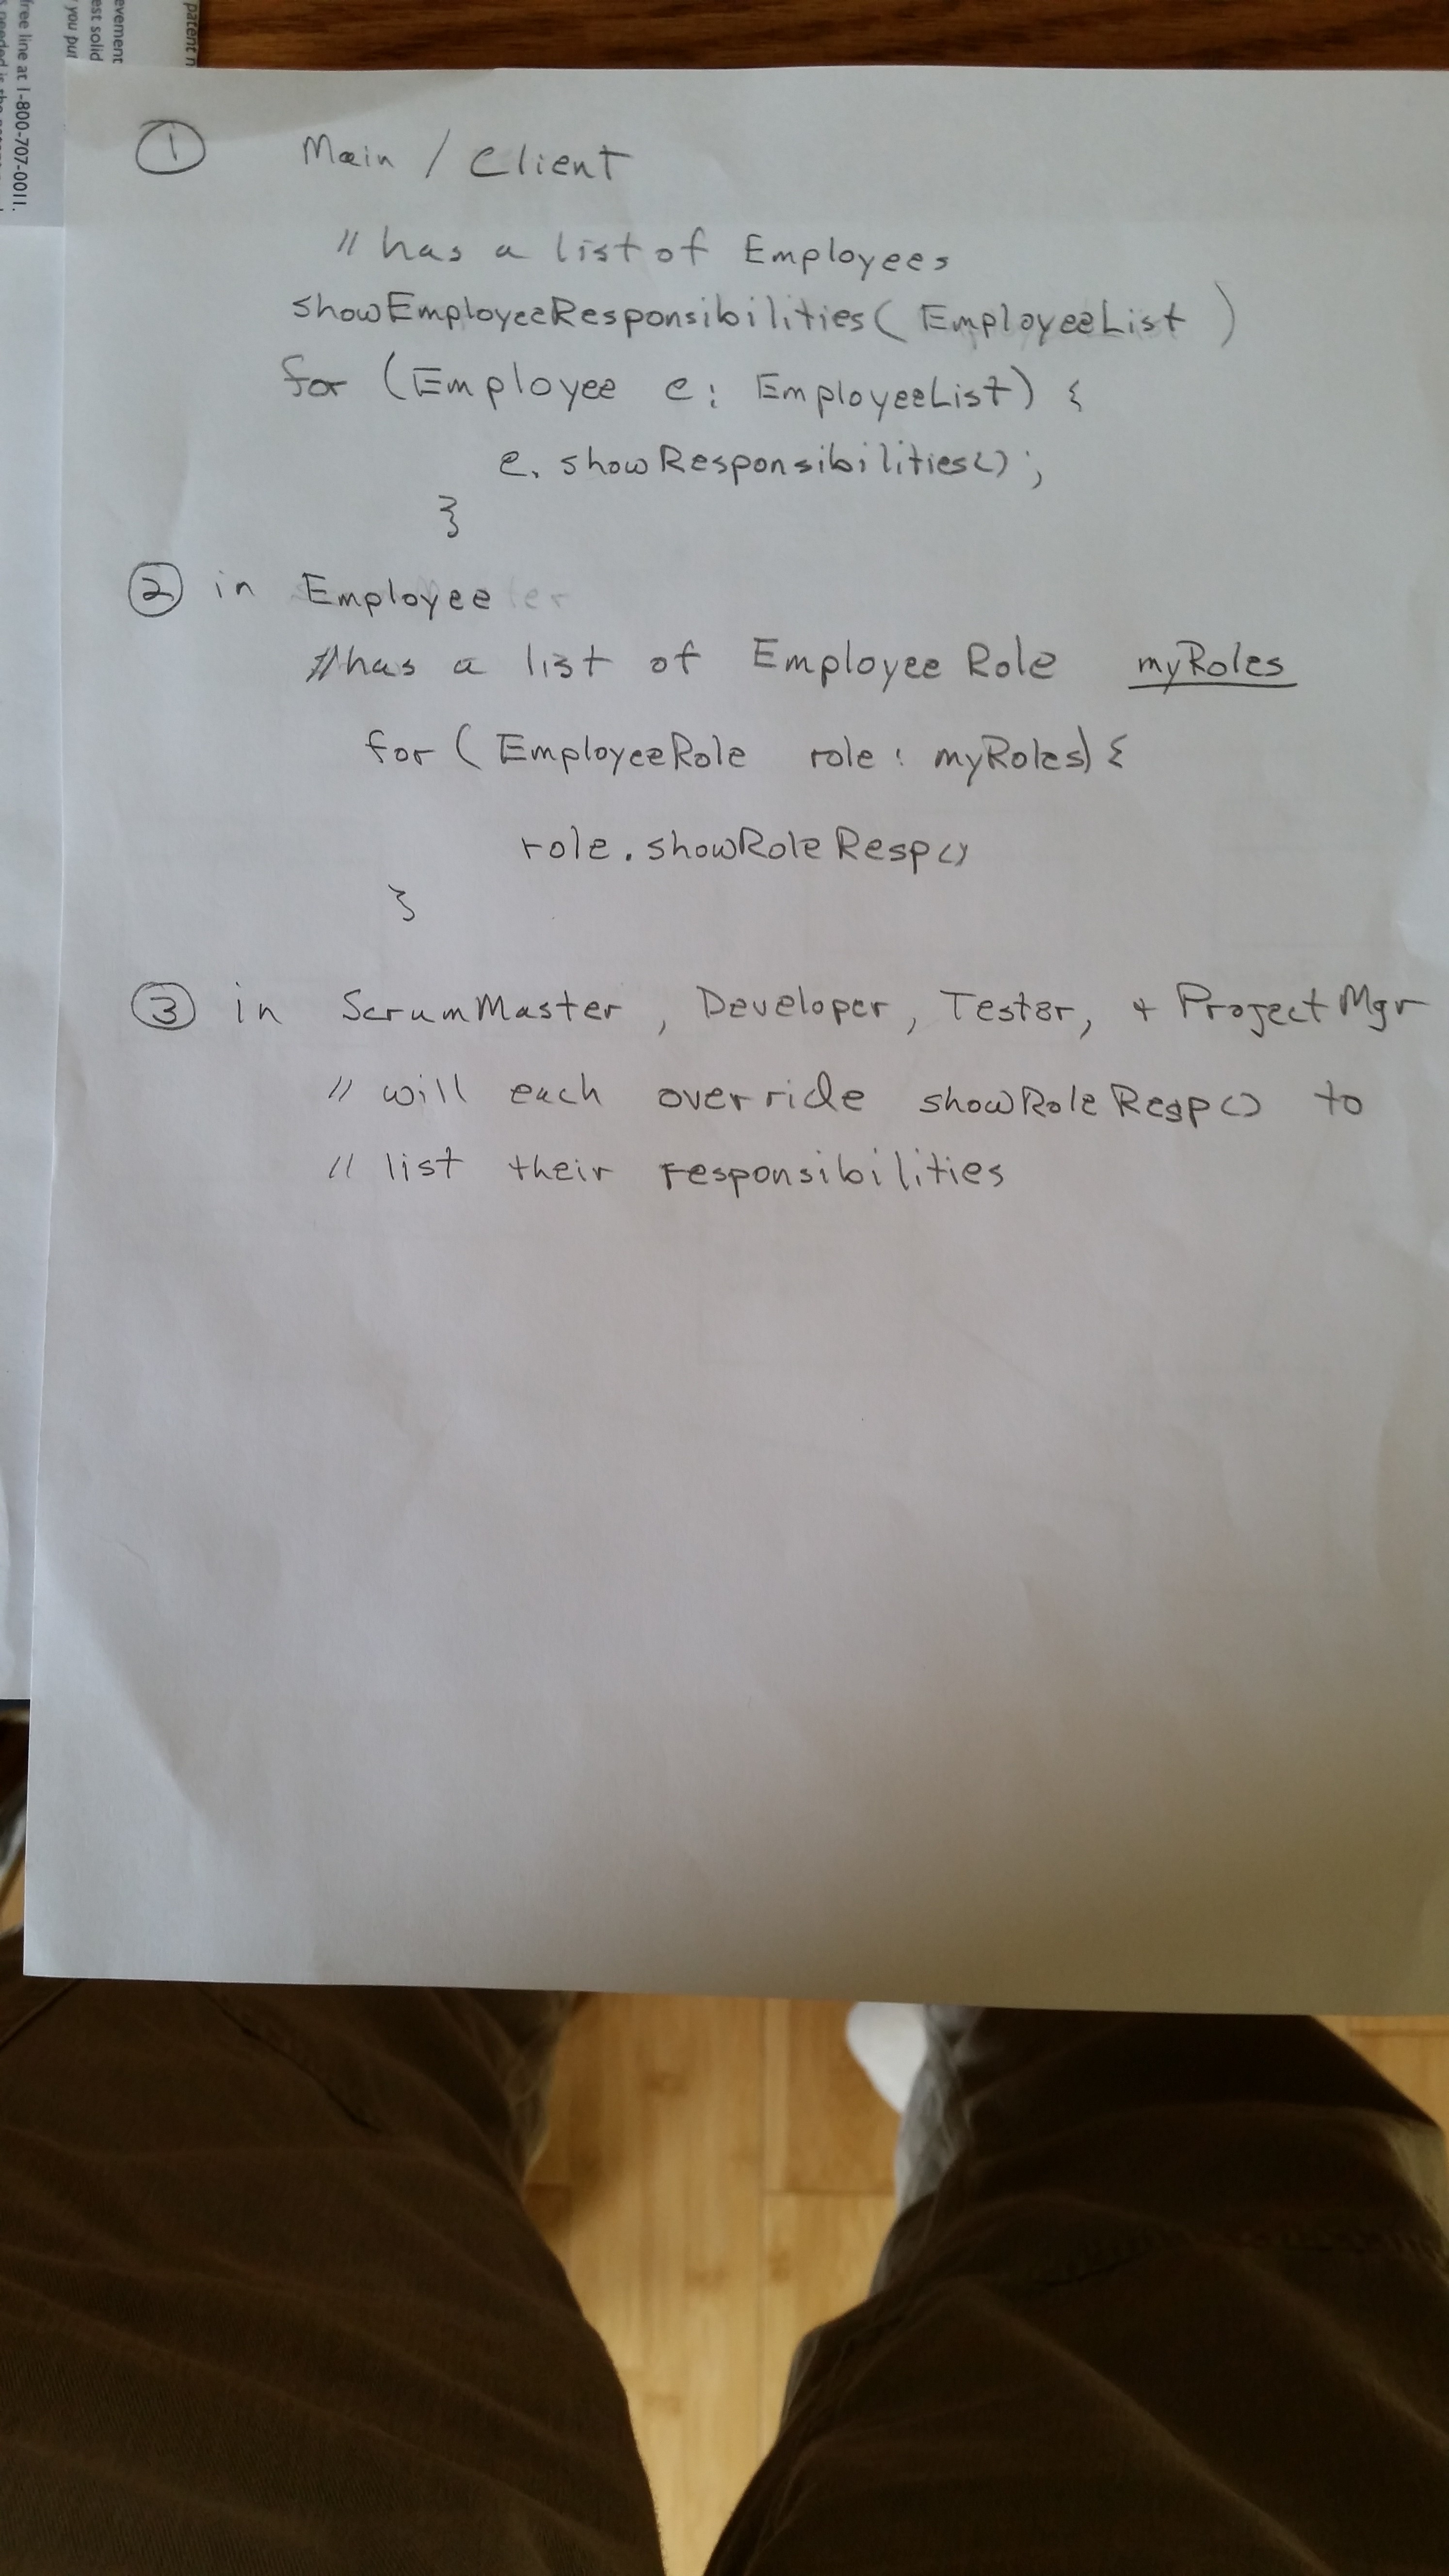 patent n
evement
est solid
you put
free line at 1-800-707-0011.
① Main / Client
// has a list of Employees
showEmployeeResponsibilities( EmployeeList )
for (Employee e: EmployeeList) {
e. showResponsibilities();
}
② in Employee
//has a list of Employee Role myRoles
for ( EmployeeRole role : myRoles) {
role.showRoleResp()
}
③ in ScrumMaster, Developer, Tester, + ProjectMgr
// will each override showRoleResp() to
// list their responsibilities